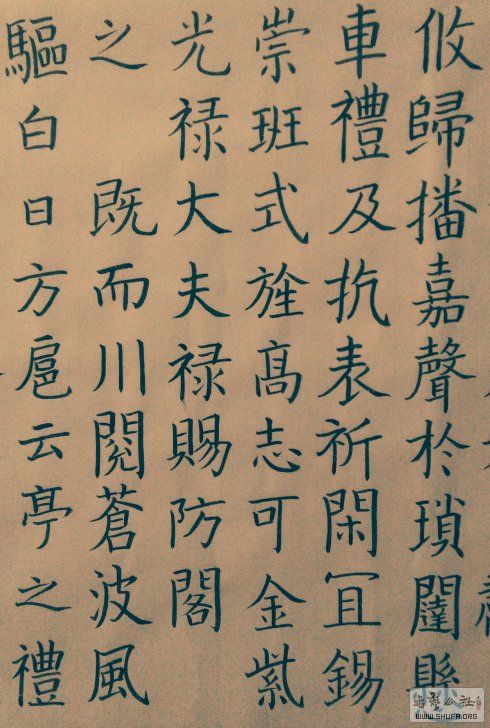 攸歸播嘉聲於瑣闥縣
車禮及抗表祈閑冝錫
崇班式旌髙志可金紫
光禄大夫禄賜防閤
之 既而川閱蒼波風
驅白日方扈云亭之禮
WWW.SHUFA.ORG